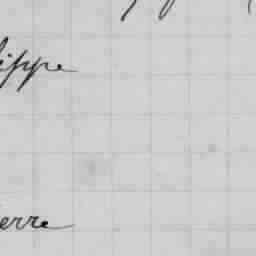 lippe
ierre